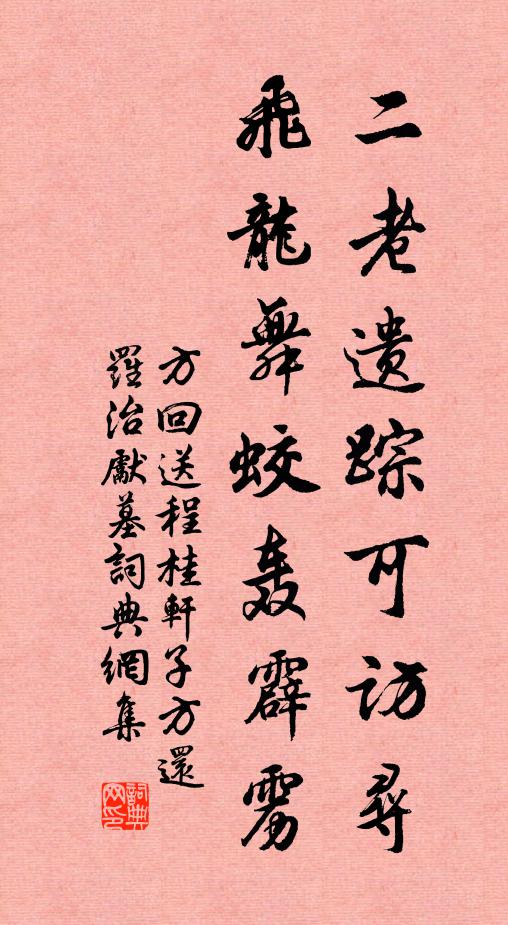 二老遗踪可访尋
飛龍舞蛟轰霹雳
方回送程桂軒子方還
羅治獻墓詞典網集
詞典网印